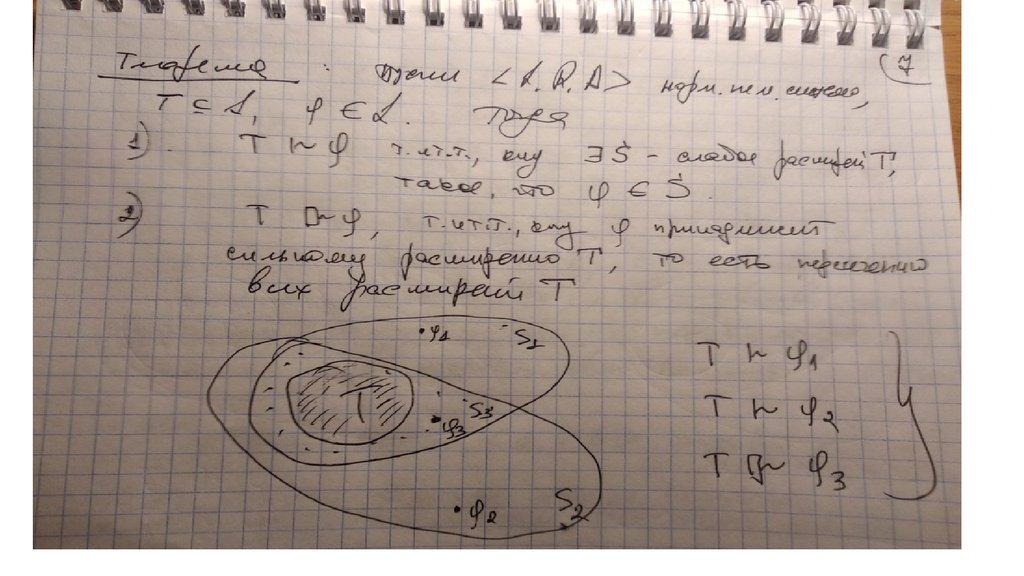 7
Теорема : пусть <L, R, A> норм. система,
T ⊆ L, φ ∈ L. Тогда
1). T |~ φ т.и.т.т., когда ∃ S - слабое расширен. T,
такое, что φ ∈ S.
2) T □~ φ, т.и.т.т., когда φ принадлежит
сильному расширению T, то есть пересечению
всех расширений T
φ1 S1
T S3
φ3
φ2 S2
T |~ φ1
T |~ φ2
T □~ φ3